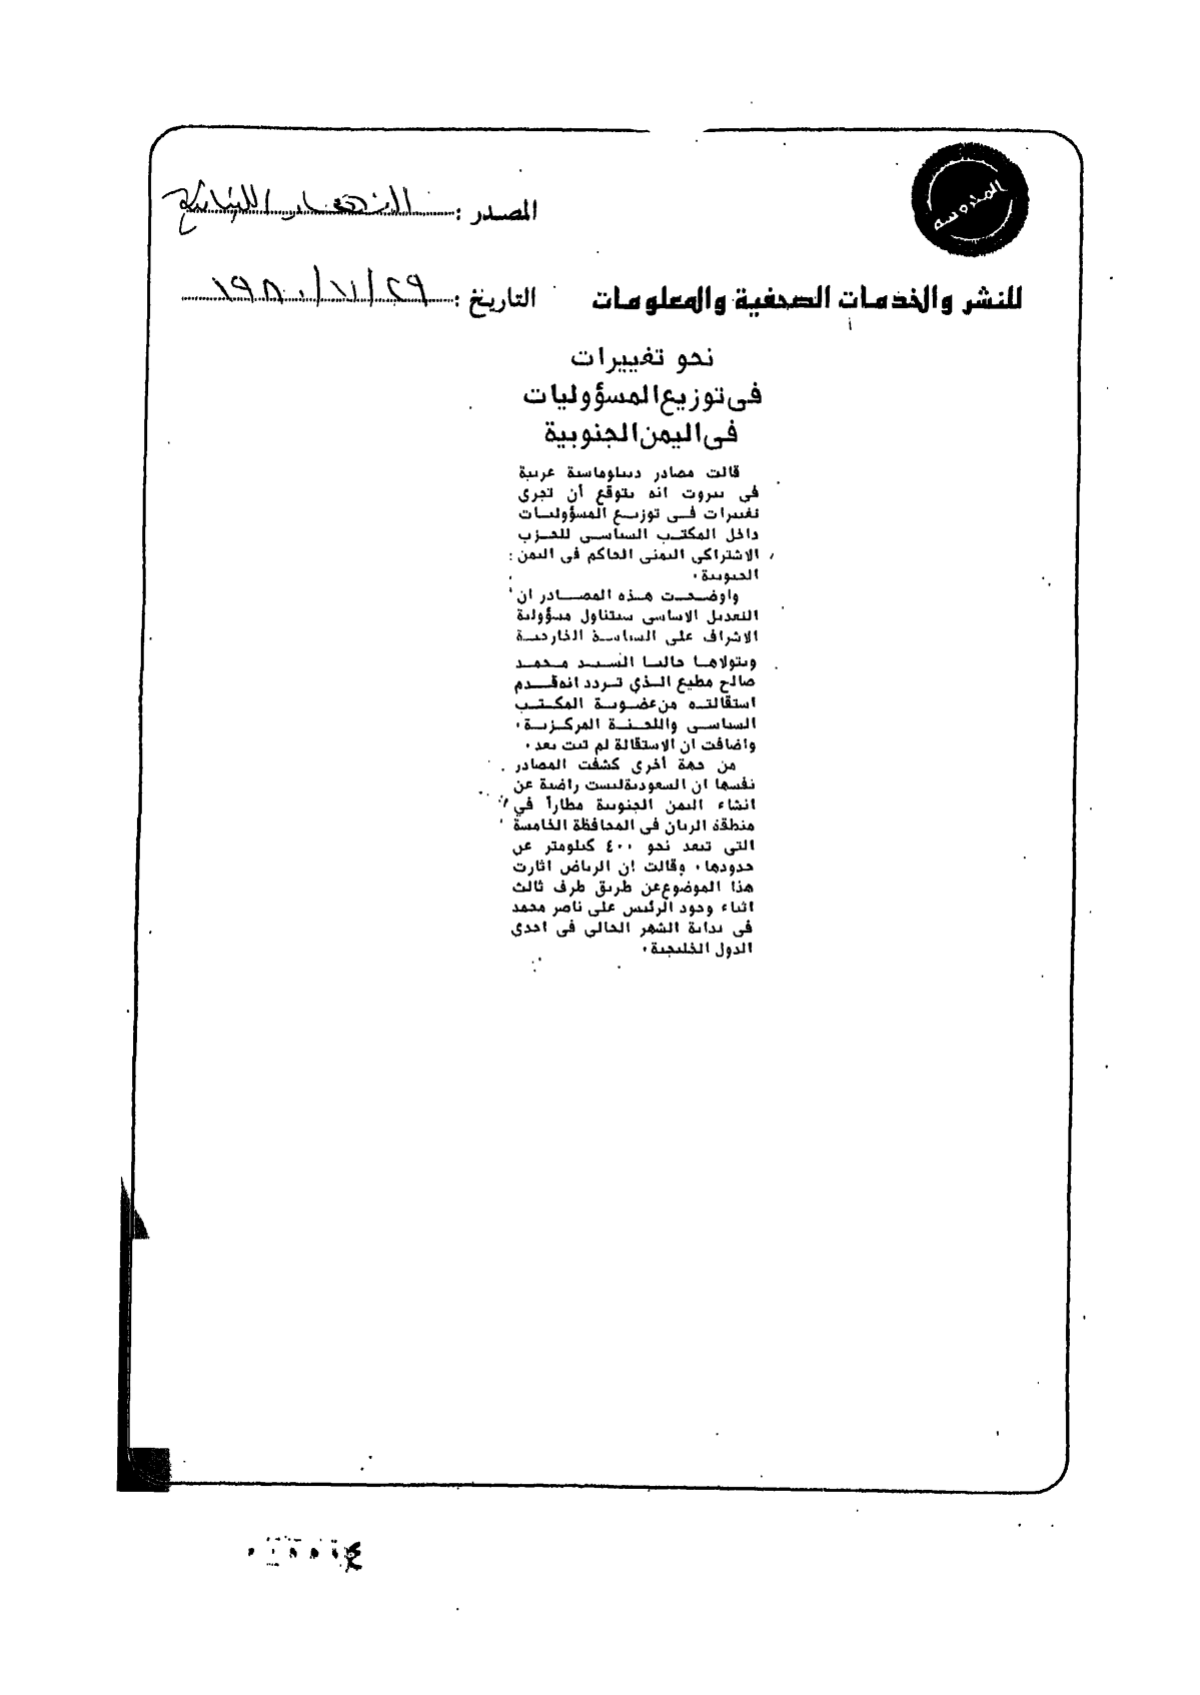 المحروسة
المصدر : النهار اللبنانية
للنشر والخدمات الصحفية والمعلومات
التاريخ : ٢٩/١١/١٩٨٠
نحو تغييرات
فى توزيع المسؤوليات
فى اليمن الجنوبية
قالت مصادر ديبلوماسية عربية
فى بيروت انه يتوقع أن تجرى
تغييرات فــى توزيــع المسؤوليــات
داخل المكتــب السياســى للحــزب
الاشتراكى اليمنى الحاكم فى اليمن
الجنوبية٠
واوضــحــت هــذه المصــــادر ان
التعديل الاساسى سيتناول مسؤولية
الاشراف على السياســة الخارجيــة
ويتولاهــا حاليــا الســيــد مــحــمــد
صالح مطيع الــذي تــردد انه قــدم
استقالتــه من عضــويــة المكــتــب
السياســى واللجــنــة المركــزيــة٠
واضافت ان الاستقالة لم تبت بعد٠
من جهة أخرى كشفت المصادر
نفسها ان السعودية ليست راضية عن
انشاء اليمن الجنوبية مطاراً في
منطقة الريان فى المحافظة الخامسة
التى تبعد نحو ٤٠٠ كيلومتر عن
حدودها٠ وقالت ان الرياض اثارت
هذا الموضوع عن طريق طرف ثالث
اثناء وجود الرئيس على ناصر محمد
فى بداية الشهر الحالي فى احدى
الدول الخليجية٠